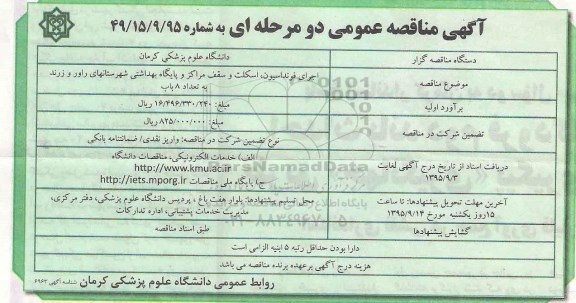 آگهی مناقصه عمومی دو مرحله ای به شماره ۴۹/۱۵/۹/۹۵
دستگاه مناقصه گزار
دانشگاه علوم پزشکی کرمان
موضوع مناقصه
اجرای فونداسیون، اسکلت و سقف مراکز و پایگاه بهداشتی شهرستانهای راور و زرند به تعداد ۸ باب
برآورد اولیه
مبلغ: ۱۶/۴۹۶/۳۳۰/۲۴۰ ریال
تضمین شرکت در مناقصه
مبلغ: ۸۲۵/۰۰۰/۰۰۰ ریال
نوع تضمین شرکت در مناقصه: واریز نقدی/ ضمانتنامه بانکی
دریافت اسناد از تاریخ درج آگهی لغایت
۱۳۹۵/۹/۳
الف) خدمات الکترونیکی، مناقصات دانشگاه
http://www.kmu.ac.ir
ج) پایگاه ملی مناقصات http://iets.mporg.ir
آخرین مهلت تحویل پیشنهادها: تا ساعت
۱۵روز یکشنبه مورخ ۱۳۹۵/۹/۱۴
محل تسلیم پیشنهادها: بلوار هفت باغ ، پردیس دانشگاه علوم پزشکی، دفتر مرکزی،
مدیریت خدمات پشتیبانی، اداره تدارکات
گشایش پیشنهادها
طبق اسناد مناقصه
دارا بودن حداقل رتبه ۵ ابنیه الزامی است
هزینه درج آگهی برعهده برنده مناقصه می باشد
روابط عمومی دانشگاه علوم پزشکی کرمان
شناسه آگهی ۶۹۶۲
ParsNamadData